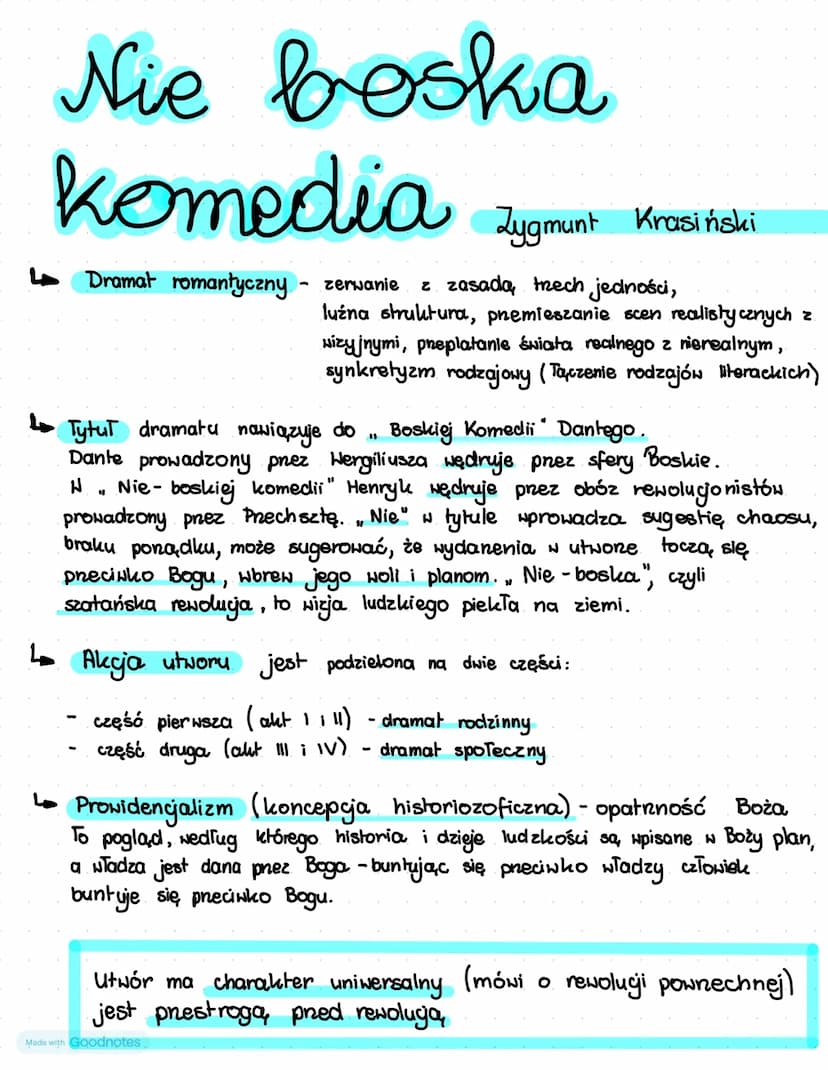 Nie boska
komedia
Zygmunt Krasiński
Dramat romantyczny - zerwanie z zasadą trzech jedności,
luźna struktura, przemieszanie scen realistycznych z
wizyjnymi, przeplatanie świata realnego z nierealnym,
synkretyzm rodzajowy (łączenie rodzajów literackich)
Tytuł dramatu nawiązuje do „Boskiej Komedii" Dantego.
Dante prowadzony przez Wergiliusza wędruje przez sfery Boskie.
W „Nie-boskiej komedii" Henryk wędruje przez obóz rewolucjonistów
prowadzony przez Przechsztę. „Nie" w tytule wprowadza sugestię chaosu,
braku porządku, może sugerować, że wydarzenia w utworze toczą się
przeciwko Bogu, wbrew jego woli i planom. „Nie-boska", czyli
szatańska rewolucja, to wizja ludzkiego piekła na ziemi.
Akcja utworu jest podzielona na dwie części:
- część pierwsza (akt I i II) - dramat rodzinny
- część druga (akt III i IV) - dramat społeczny
Prowidencjalizm (koncepcja historiozoficzna) - opatrzność Boża
To pogląd, według którego historia i dzieje ludzkości są wpisane w Boży plan,
a władza jest dana przez Boga - buntując się przeciwko władzy człowiek
buntuje się przeciwko Bogu.
Utwór ma charakter uniwersalny (mówi o rewolucji powszechnej)
jest przestrogą przed rewolucją
Made with Goodnotes